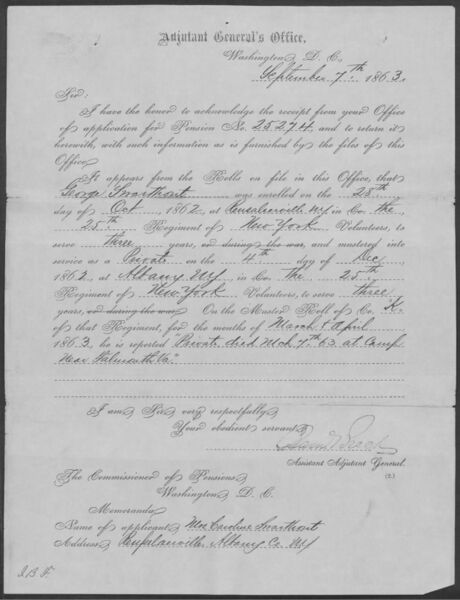 Adjutant General's Office,
Washington, D. C.
September 7th, 1863.
Sir:
I have the honor to acknowledge the receipt from your Office
of application for Pension No. 25274, and to return it
herewith, with such information as is furnished by the files of this
Office.
It appears from the Rolls on file in this Office, that
George Swarthout was enrolled on the 28th
day of Oct, 1862, at Rensalaerville NY in Co. the
25th Regiment of New York Volunteers, to
serve three years, or during the war, and mustered into
service as a Private on the 4th day of Dec,
1862, at Albany NY, in Co. the 25th
Regiment of New York Volunteers, to serve three
years, or during the war. On the Muster Roll of Co. K
of that Regiment, for the months of March & April
1863, he is reported "Private died Mch 7th 63 at Camp
Near Falmouth Va."
I am, Sir, very respectfully,
Your obedient servant,
Assistant Adjutant General.
(2.)
The Commissioner of Pensions,
Washington, D. C.
Memoranda
Name of applicant, Mrs Caroline Swarthout
Address, Rensalaerville, Albany Co. NY